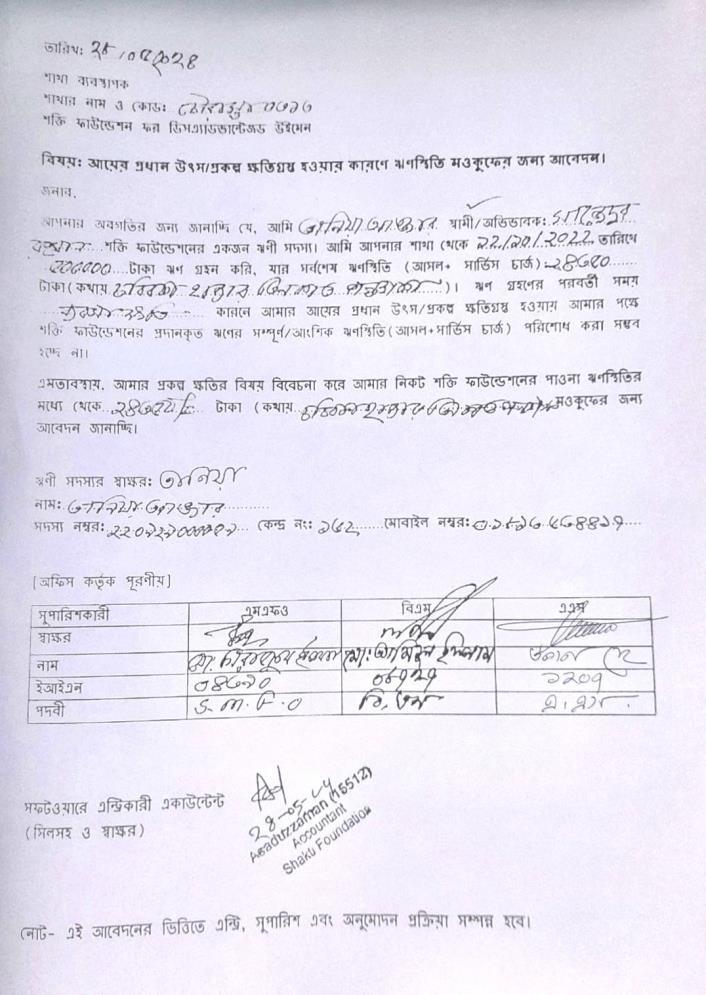 তারিখ: ২৮/০৫/২০২৪
শাখা ব্যবস্থাপক
শাখার নাম ও কোড:
শক্তি ফাউন্ডেশন ফর ডিসএ্যাডভান্টেজড উইমেন
বিষয়: আয়ের প্রধান উৎস/প্রকল্প ক্ষতিগ্রস্থ হওয়ার কারণে ঋণস্থিতি মওকুফের জন্য আবেদন।
জনাব,
আপনার অবগতির জন্য জানাচ্ছি যে, আমি তানিয়া আক্তার স্বামী/অভিভাবক:
শক্তি ফাউন্ডেশনের একজন ঋণী সদস্য। আমি আপনার শাখা থেকে ২২/১০/২০২২ তারিখে
টাকা ঋণ গ্রহন করি, যার সর্বশেষ ঋণস্থিতি (আসল+ সার্ভিস চার্জ)
টাকা (কথায় চব্বিশ হাজার )। ঋণ গ্রহণের পরবর্তী সময়
কারনে আমার আয়ের প্রধান উৎস/প্রকল্প ক্ষতিগ্রস্থ হওয়ায় আমার পক্ষে
শক্তি ফাউন্ডেশনের প্রদানকৃত ঋণের সম্পূর্ণ/আংশিক ঋণস্থিতি (আসল+সার্ভিস চার্জ) পরিশোধ করা সম্ভব
হচ্ছে না।
এমতাবস্থায়, আমার প্রকল্প ক্ষতির বিষয় বিবেচনা করে আমার নিকট শক্তি ফাউন্ডেশনের পাওনা ঋণস্থিতির
মধ্যে থেকে টাকা (কথায় চব্বিশ হাজার মওকুফের জন্য
আবেদন জানাচ্ছি।
ঋণী সদস্যর স্বাক্ষর: তানিয়া
নাম: তানিয়া আক্তার
সদস্য নম্বর: কেন্দ্র নং: ১৬২ মোবাইল নম্বর:
[অফিস কর্তৃক পূরণীয়]
সুপারিশকারী এমএফও বিএম এএম
স্বাক্ষর
নাম মো: আমিনুল ইসলাম
ইআইএন ১২০৭
পদবী S.M.F.O বি, এম এ, এম
সফটওয়ারে এন্ট্রিকারী একাউন্টেন্ট
(সিলসহ ও স্বাক্ষর)
28-05-24
Asaduzzaman (15512)
Accountant
Shakti Foundation
নোট- এই আবেদনের ভিত্তিতে এন্ট্রি, সুপারিশ এবং অনুমোদন প্রক্রিয়া সম্পন্ন হবে।